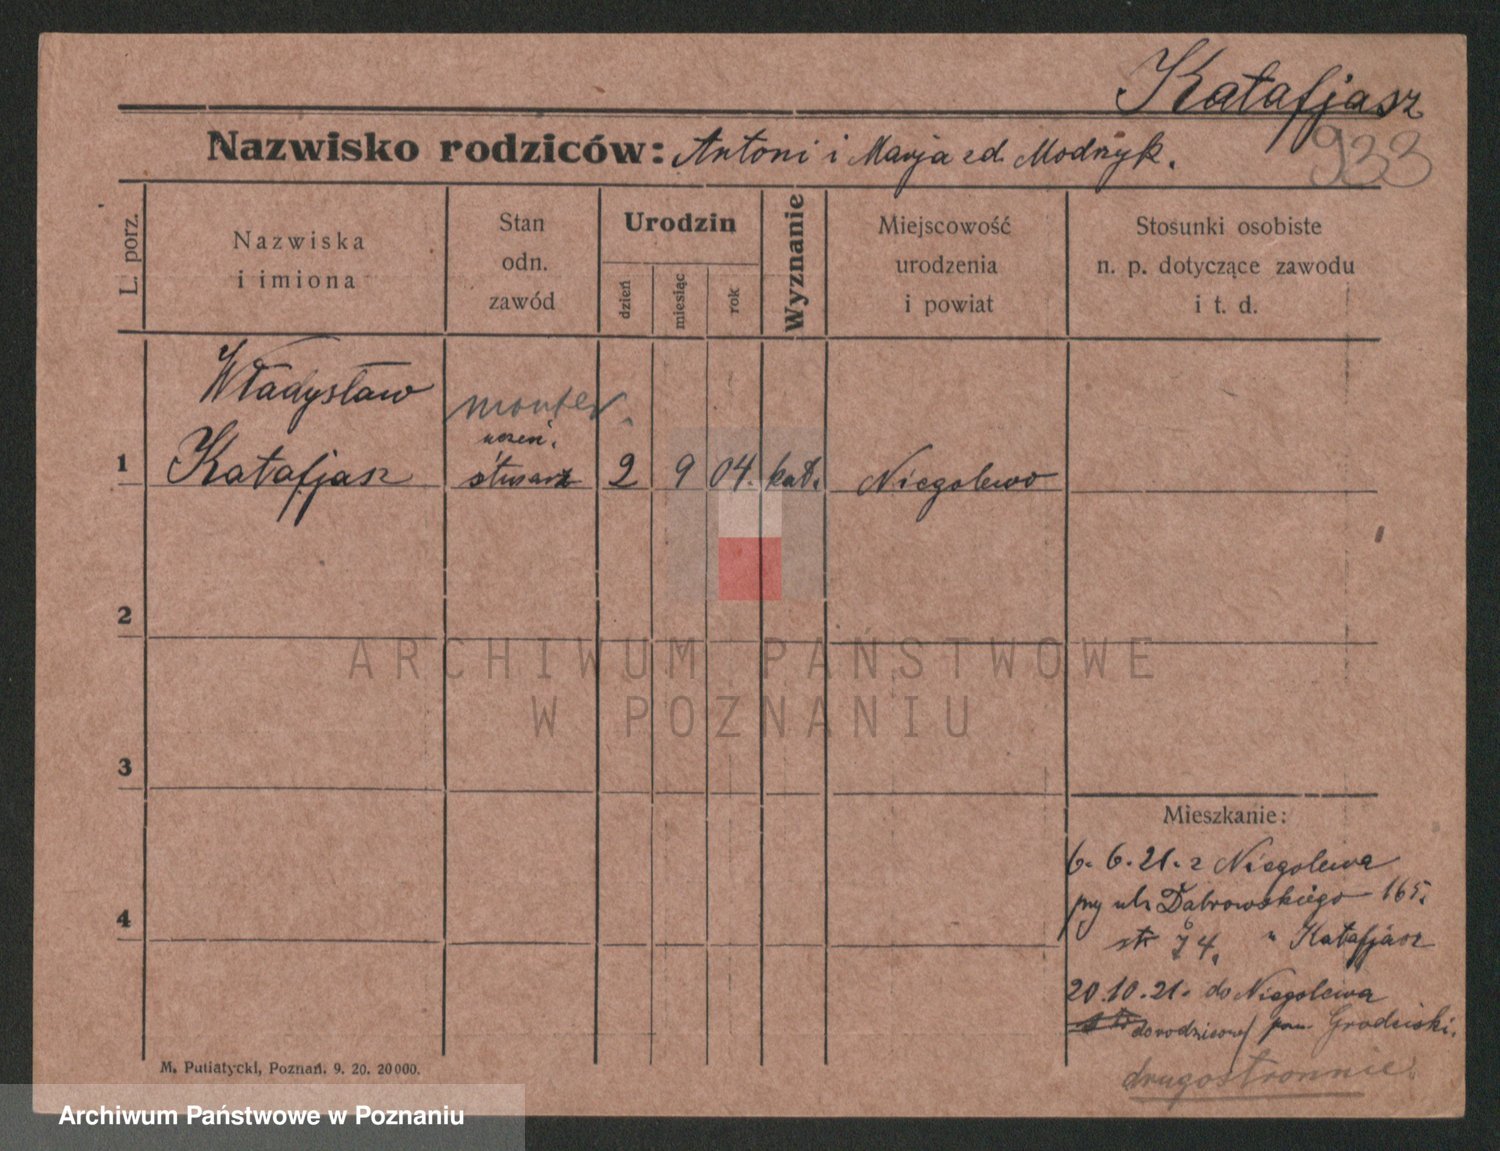 Katafjasz
933
Nazwisko rodziców: Antoni i Marja zd. Modrzyk.
L. porz.
Nazwiska
i imiona
Stan
odn.
zawód
Urodzin
dzień
miesiąc
rok
Wyznanie
Miejscowość
urodzenia
i powiat
Stosunki osobiste
n. p. dotyczące zawodu
i t. d.
Władysław
monter
uczeń.
1 Katafjasz ślusarz 2 9 04. kat. Niegolewo
2
3
4
ARCHIWUM PAŃSTWOWE
W POZNANIU
Mieszkanie:
6. 6. 21. z Niegolewa
przy ul. Dąbrowskiego 165.
u Katafjasz
20.10.21. do Niegolewa
do rodziców pow. Grodziski.
drugostronnie
M. Putiatycki, Poznań. 9. 20. 20000.
Archiwum Państwowe w Poznaniu